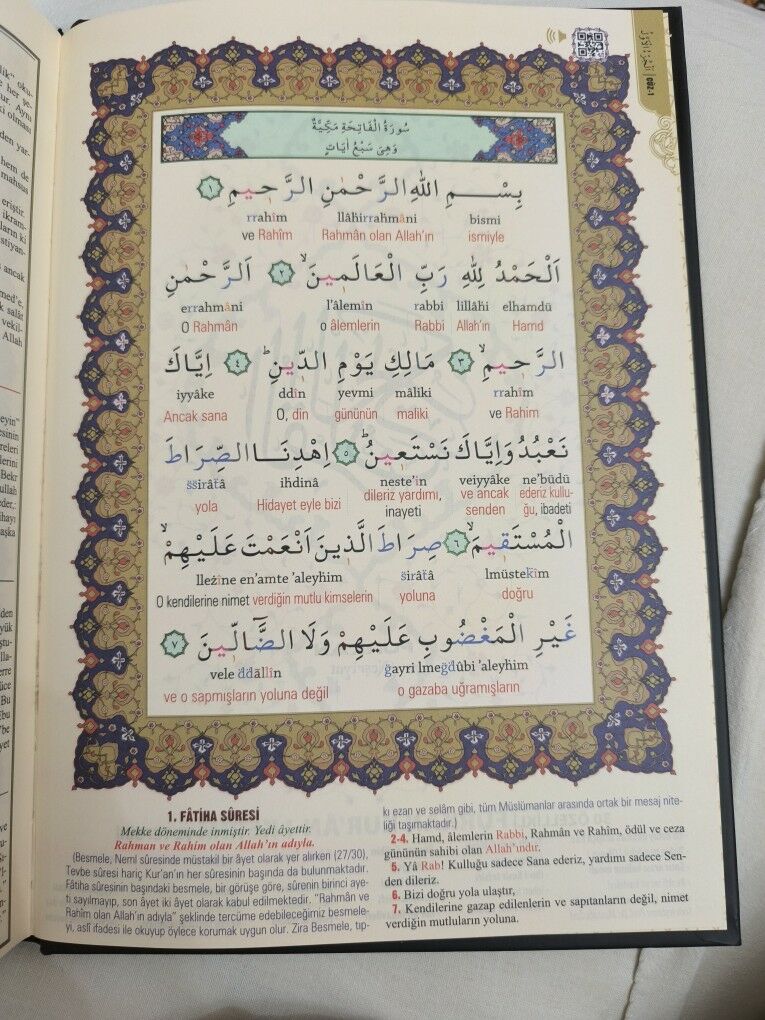 الجزء الاول
CÜZ-1
سُورَةُ الْفَاتِحَةِ مَكِّيَّةٌ
وَهِىَ سَبْعُ اٰيَاتٍ
بِسْمِ اللّٰهِ الرَّحْمٰنِ الرَّح۪يمِ ١
bismi llâhirrahmâni rrahîm
ismiyle Rahmân olan Allah'ın ve Rahîm
اَلْحَمْدُ لِلّٰهِ رَبِّ الْعَالَم۪ينَۙ ٢ اَلرَّحْمٰنِ
elhamdü lillâhi rabbi l'âlemîn errahmâni
Hamd Allah'ın Rabbi o âlemlerin O Rahmân
الرَّح۪يمِۙ ٣ مَالِكِ يَوْمِ الدّ۪ينِۜ ٤ اِيَّاكَ
rrahîm mâliki yevmi ddîn iyyâke
ve Rahim maliki gününün O, din Ancak sana
نَعْبُدُ وَاِيَّاكَ نَسْتَع۪ينُۜ ٥ اِهْدِنَا الصِّرَاطَ
ne'büdü veiyyâke neste'în ihdina ṡṡirâṫâ
ederiz kullu-ğu, ibadeti ve ancak senden dileriz yardımı, inayeti Hidayet eyle bizi yola
الْمُسْتَق۪يمَۙ ٦ صِرَاطَ الَّذ۪ينَ اَنْعَمْتَ عَلَيْهِمْۙ
lmüsteḱîm ṡirâṫâ lleżîne en'amte 'aleyhim
doğru yoluna verdiğin mutlu kimselerin O kendilerine nimet
غَيْرِ الْمَغْضُوبِ عَلَيْهِمْ وَلَا الضَّٓالّ۪ينَ ٧
ğayri lmeğdûbi 'aleyhim vele ddâllîn
o gazaba uğramışların ve o sapmışların yoluna değil
1. FÂTİHA SÛRESİ
Mekke döneminde inmiştir. Yedi âyettir.
Rahman ve Rahîm olan Allah'ın adıyla.
(Besmele, Neml sûresinde müstakil bir âyet olarak yer alırken (27/30),
Tevbe sûresi hariç Kur'an'ın her sûresinin başında da bulunmaktadır.
Fâtiha sûresinin başındaki besmele, bir görüşe göre, sûrenin birinci aye-
ti sayılmayıp, son âyet iki âyet olarak kabul edilmektedir. "Rahmân ve
Rahîm olan Allah'ın adıyla" şeklinde tercüme edebileceğimiz besmele-
yi, aslî ifadesi ile okuyup öylece korumak uygun olur. Zira Besmele, tıp-
kı ezan ve selâm gibi, tüm Müslümanlar arasında ortak bir mesaj nite-
liği taşımaktadır.)
2-4. Hamd, âlemlerin Rabbi, Rahmân ve Rahîm, ödül ve ceza
gününün sahibi olan Allah'ındır.
5. Yâ Rab! Kulluğu sadece Sana ederiz, yardımı sadece Sen-
den dileriz.
6. Bizi doğru yola ulaştır,
7. Kendilerine gazap edilenlerin ve sapıtanların değil, nimet
verdiğin mutluların yoluna.